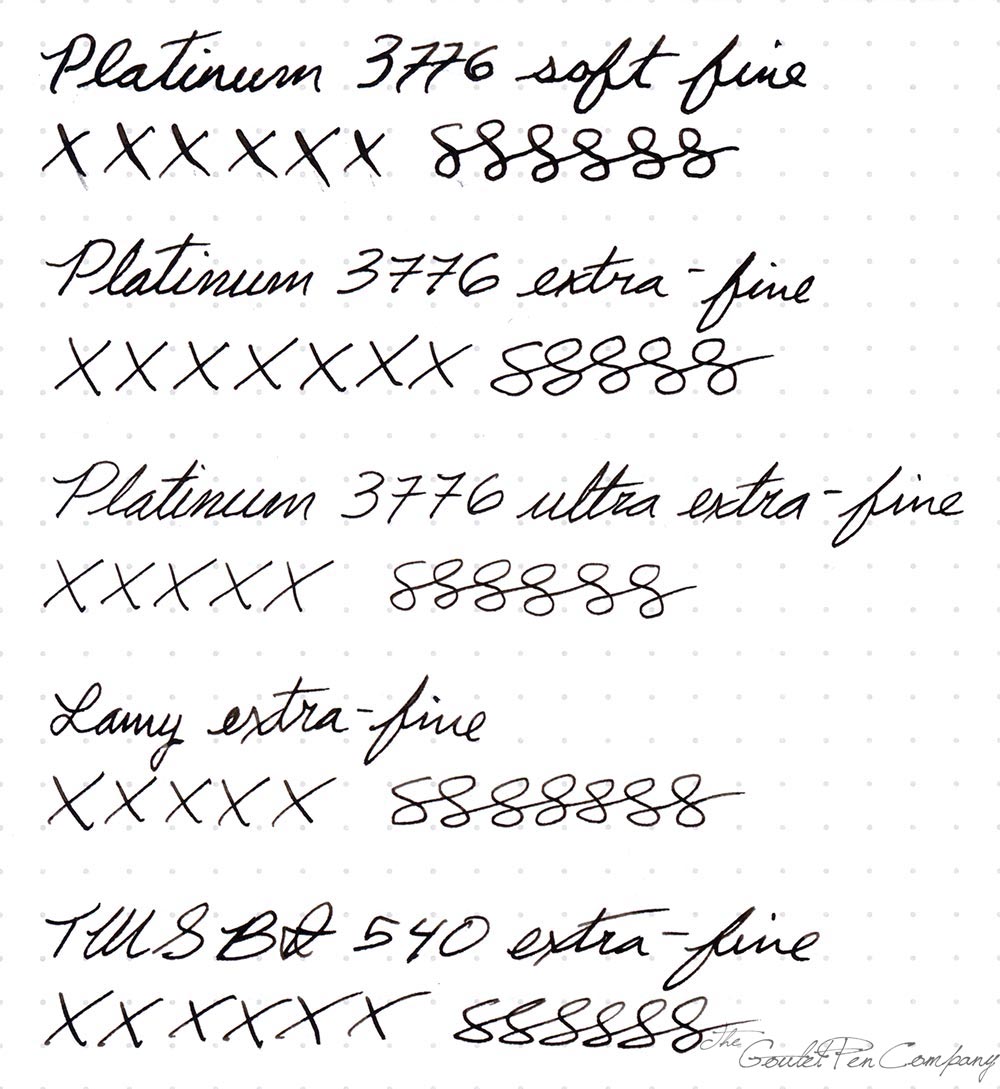 Platinum 3776 soft fine
X X X X X X 888888
Platinum 3776 extra-fine
X X X X X X X 88888
Platinum 3776 ultra extra-fine
X X X X X 888888
Lamy extra-fine
X X X X X 8888888
TWSBI 540 extra-fine
X X X X X X 888888
The Goulet Pen Company